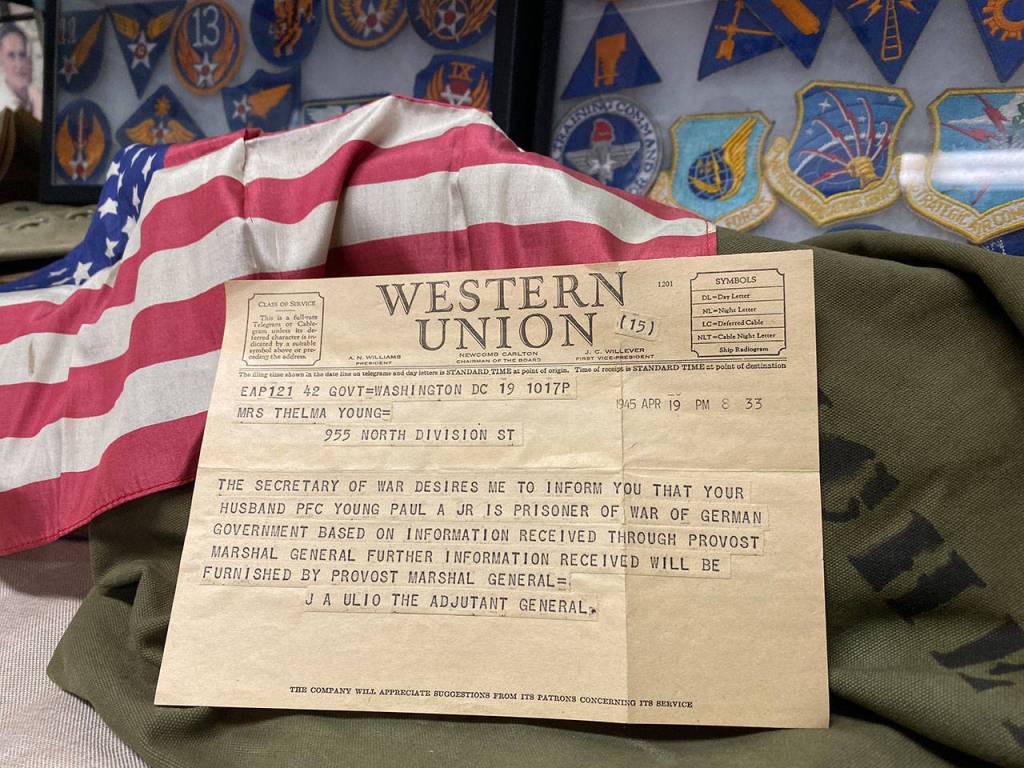 11
13
IX
TRAINING COMMAND
FORCES
STRATEGIC AIR COMMAND
CLASS OF SERVICE
This is a full-rate
Telegram or Cable-
gram unless its de-
ferred character is in-
dicated by a suitable
symbol above or pre-
ceding the address.
WESTERN
UNION
1201
(15)
A. N. WILLIAMS
PRESIDENT
NEWCOMB CARLTON
CHAIRMAN OF THE BOARD
J. C. WILLEVER
FIRST VICE-PRESIDENT
SYMBOLS
DL=Day Letter
NL=Night Letter
LC=Deferred Cable
NLT=Cable Night Letter
Ship Radiogram
The filing time shown in the date line on telegrams and day letters is STANDARD TIME at point of origin. Time of receipt is STANDARD TIME at point of destination
EAP121 42 GOVT=WASHINGTON DC 19 1017P
1945 APR 19 PM 8 33
MRS THELMA YOUNG=
955 NORTH DIVISION ST
THE SECRETARY OF WAR DESIRES ME TO INFORM YOU THAT YOUR
HUSBAND PFC YOUNG PAUL A JR IS PRISONER OF WAR OF GERMAN
GOVERNMENT BASED ON INFORMATION RECEIVED THROUGH PROVOST
MARSHAL GENERAL FURTHER INFORMATION RECEIVED WILL BE
FURNISHED BY PROVOST MARSHAL GENERAL=
J A ULIO THE ADJUTANT GENERAL.
THE COMPANY WILL APPRECIATE SUGGESTIONS FROM ITS PATRONS CONCERNING ITS SERVICE